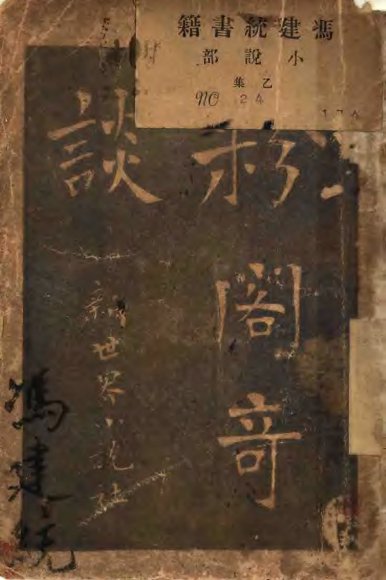 馮建統書籍
小說部
乙集
NO 24
粉閣奇
談
新世界小說社
馮建統